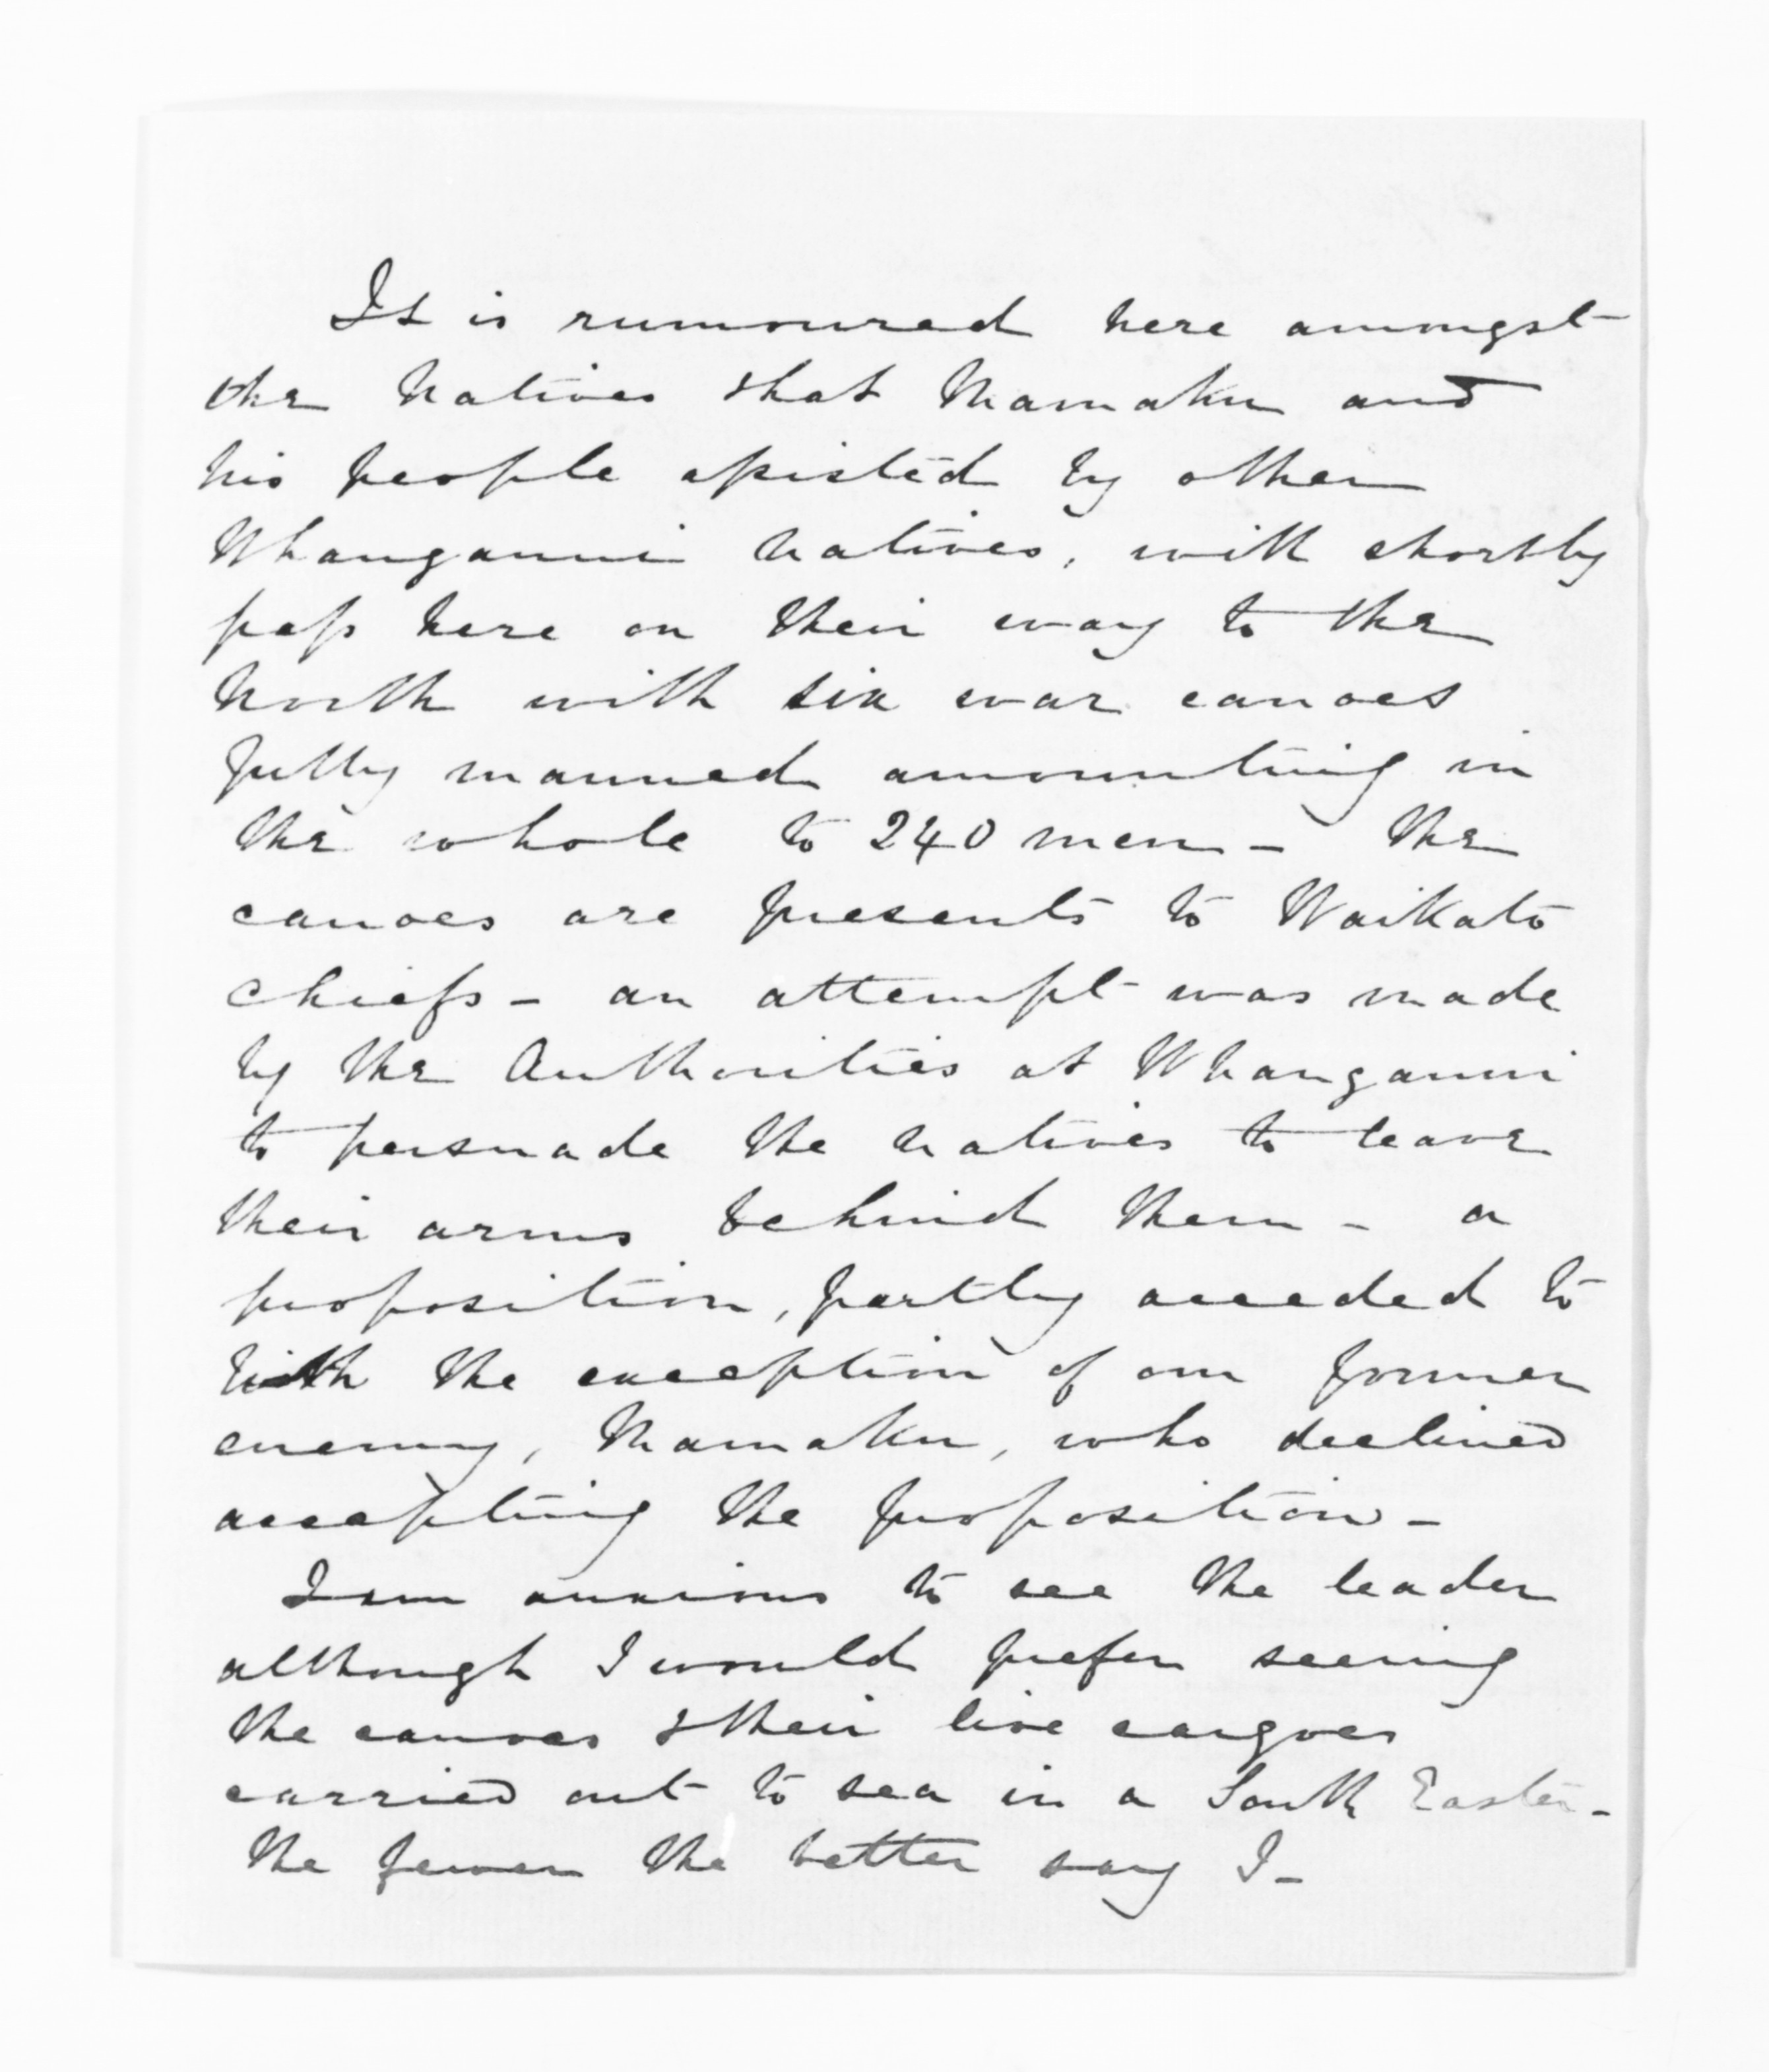 It is rumoured here amongst
the Natives that Mamaku and
his people assisted by other
Whanganui natives, will shortly
pass here on their way to the
North with six war canoes
fully manned amounting in
the whole to 240 men - the
canoes are presents to Waikato
chiefs - an attempt was made
by the Authorities at Whanganui
to persuade the natives to leave
their arms behind them - a
proposition, partly acceded to
with the exception of our former
enemy, Mamaku, who declined
accepting the proposition -
I am anxious to see the leader
although I would prefer seeing
the canoes & their live cargoes
carried out to sea in a South Easter -
the fewer the better say I -